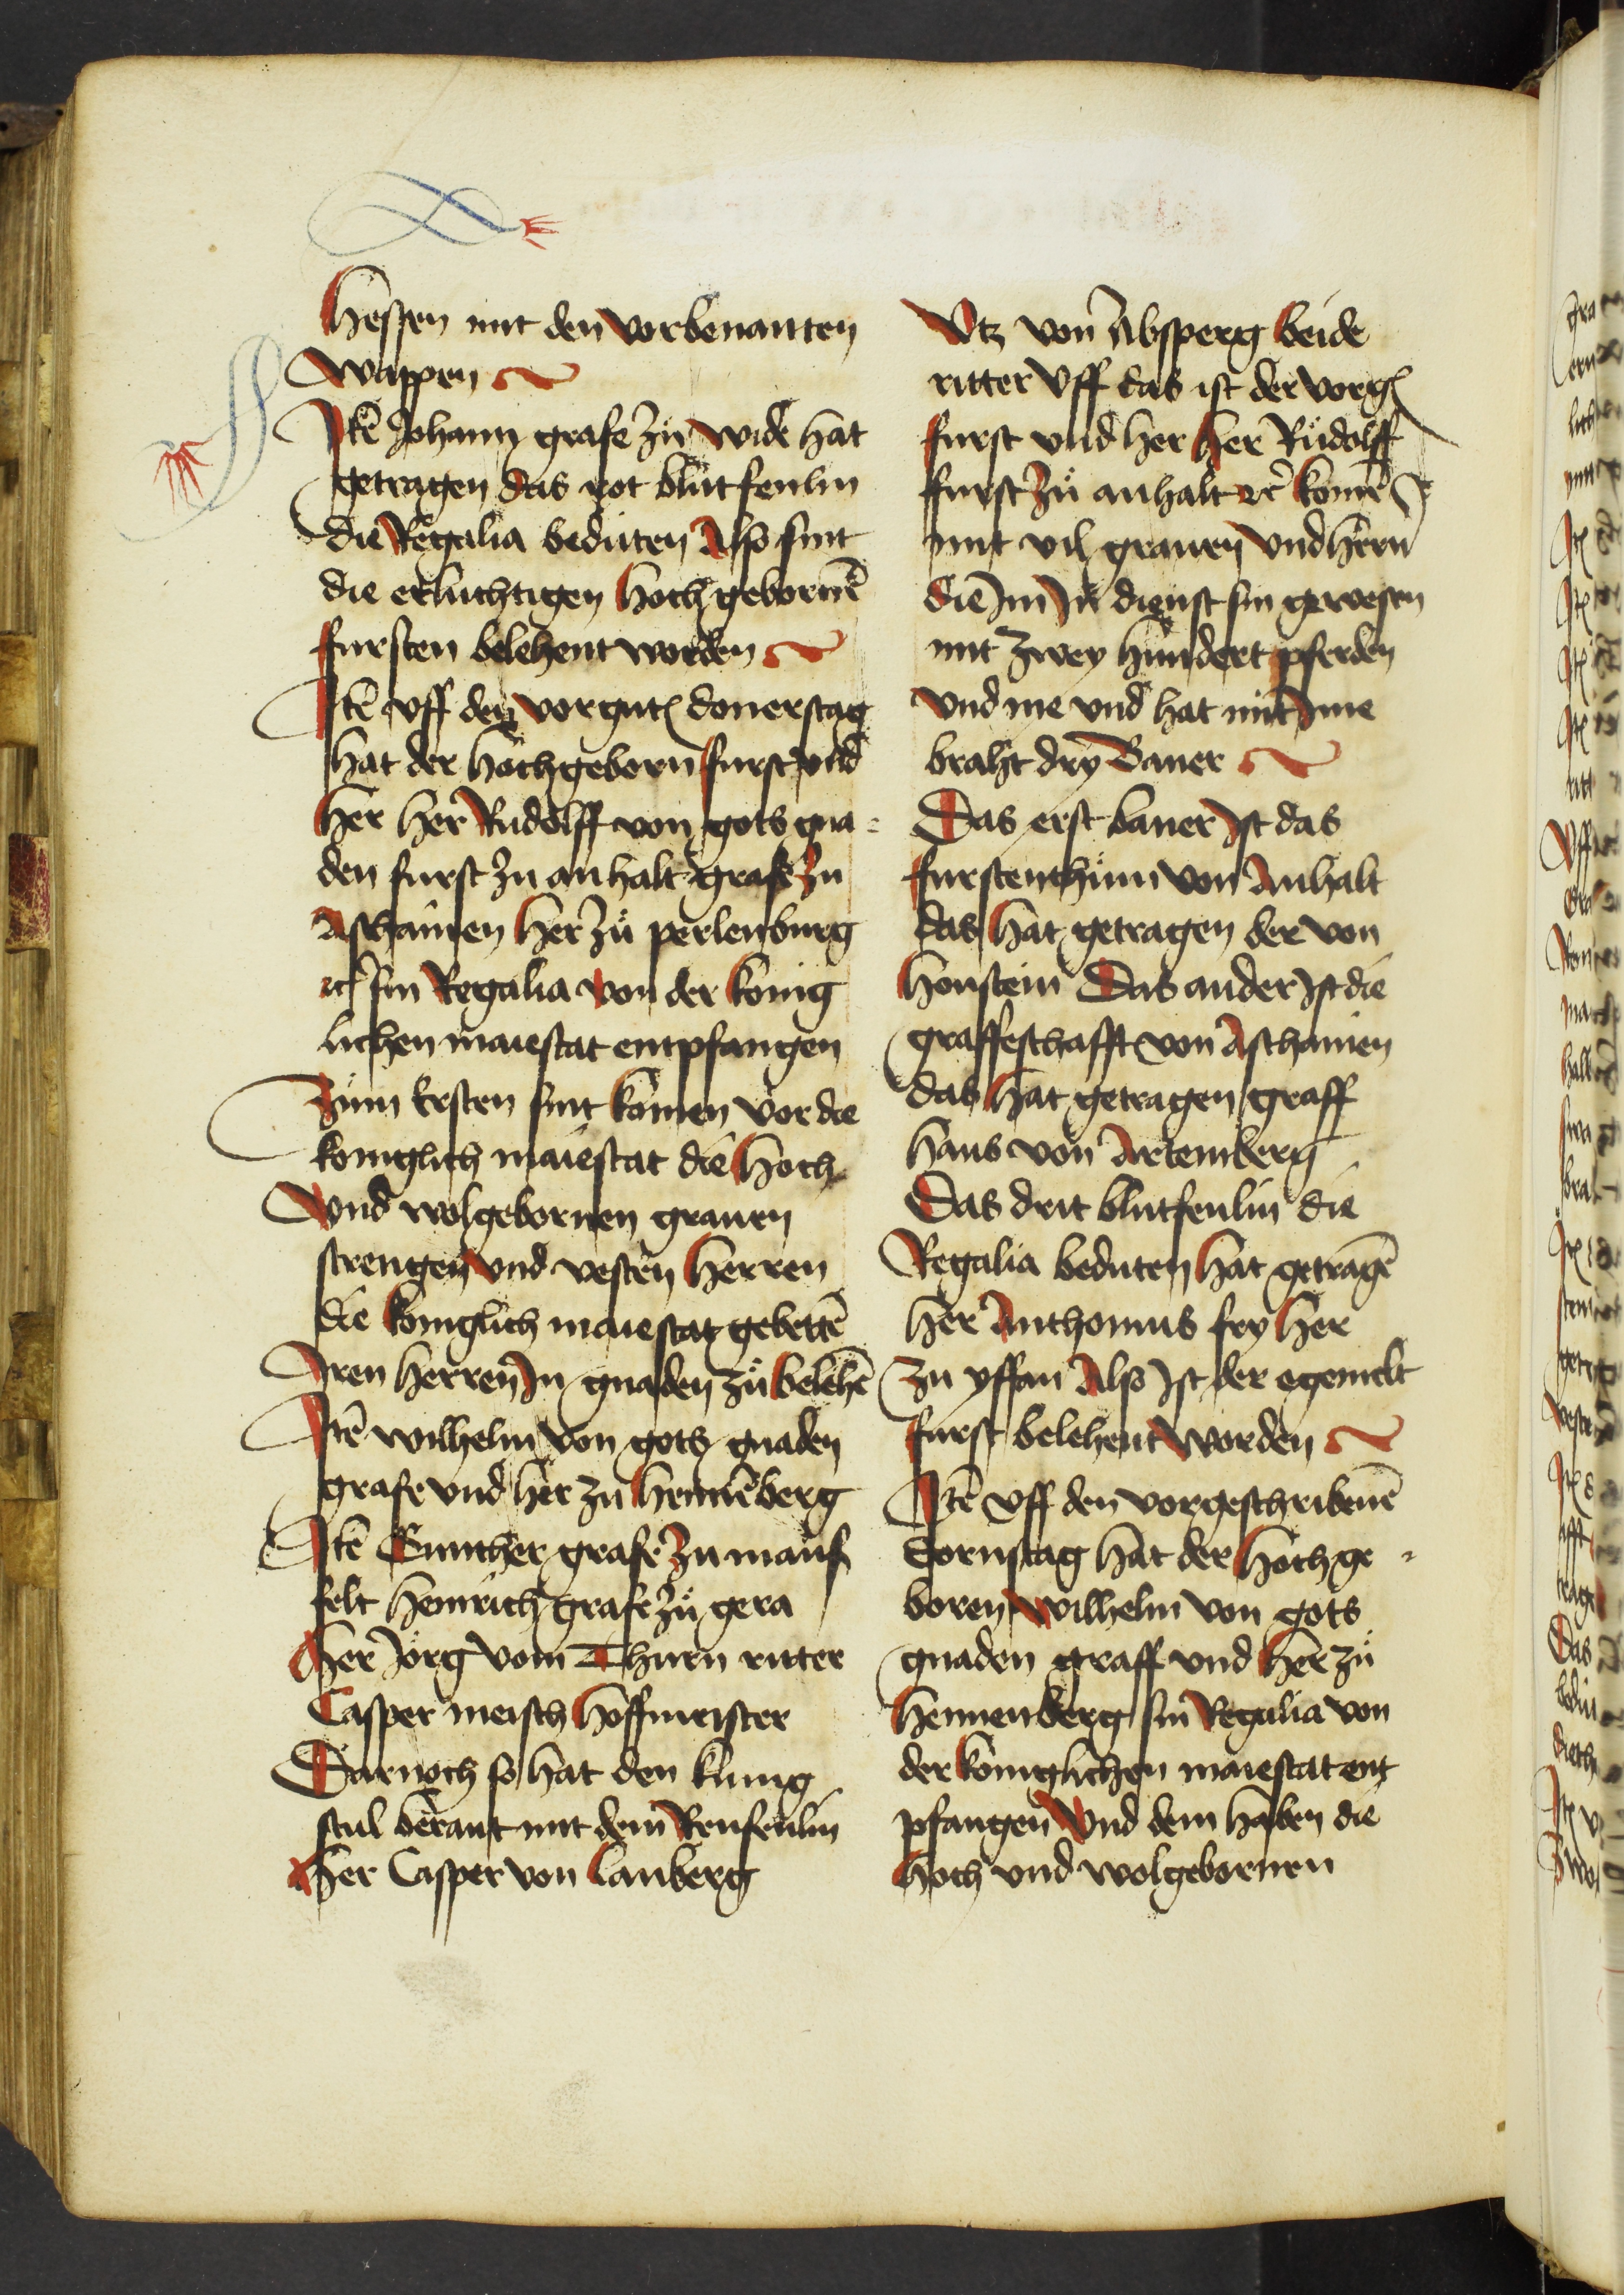 Hessen mit den vorbenanten
wappen
Itē Johann grafe zů wide hat
getragen das rot blůtfenlin
die Regalia bedůten Also sint
die erluchtigen hochgebornē
fursten belehent worden
Itē vff den vorgntē donerstag
hat der hochgeborn furst vnd
her her Rudolff von gots gna-
den furst zu anhalt grafe zu
Aschanien her zů perlenburg
ꝛc sin Regalia von der konig
lichen maiestat entpfangen
Zům Ersten sint komen vor die
koniglich maiestat die hoch
vnd wolgebornen grauen
strengen vnd vesten herren
die koniglich maiestat gebettē
Iren herren In gnaden zů belehē
Itē wilhelm von gots gnaden
grafe vnd her zu hennēberg
Itē Gunther grafe zu mans
felt Heinrich grafe zů gera
her Jörg vom Thurn ritter
Casper meisch hoffmeister
Darnoch so hat den kunig
stul berant mit dem Renfenlin
her Casper von lanberg
Vtz von Absperg beide
ritter Vff das ist der vorgē
furst vnd her her Růdolff
furst zů anhalt ꝛc komē
mit vil grauen vnd hern
die Im zů dienst sin gewesen
mit zwey hundert pferden
vnd me vnd hat mit Ime
braht dry Baner
Das erst baner Ist das
furstenthům von Anhalt
das hat getragen der von
honstein Das ander Ist die
graffeschafft von Aschanien
das hat getragen graff
hans von Artemberg
Das drit blutfenlin die
Regalia beduten hat getragē
her Anthonius fry her
zu yffan Also Ist der egemelt
furst belehent worden
Itē vff den vorgeschribenē
dornstag hat der hochge-
boren wilhelm von gots
gnaden graff vnd her zů
hennenberg sin Regalia von
der koniglichen maiestat ent
pfangen Vnd dem haben die
hoch vnd wolgebornen